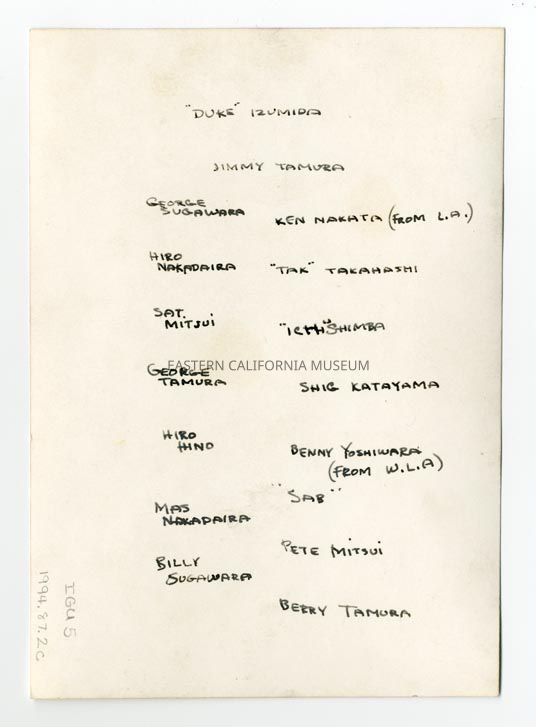 "DUKE" IZUMIDA
JIMMY TAMURA
GEORGE
SUGAWARA
KEN NAKATA (FROM L.A.)
HIRO
NAKADAIRA
"TAK" TAKAHASHI
SAT.
MITSUI
"ICHI" SHIMBA
EASTERN CALIFORNIA MUSEUM
GEORGE
TAMURA
SHIG KATAYAMA
HIRO
HINO
BENNY YOSHIWARA
(FROM W.L.A)
"SAB"
MAS
NAKADAIRA
PETE MITSUI
BILLY
SUGAWARA
BERRY TAMURA
1994.87.2C